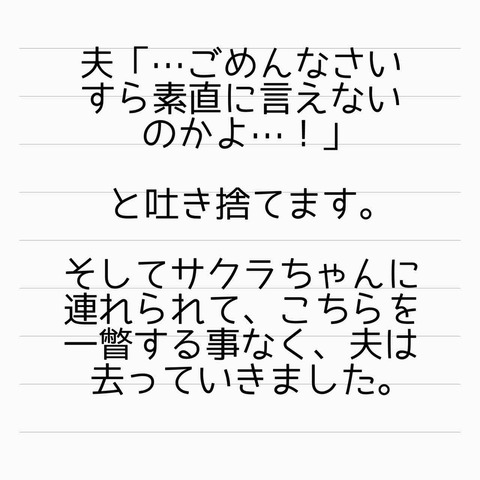 夫「…ごめんなさい
すら素直に言えない
のかよ…！」
と吐き捨てます。
そしてサクラちゃんに
連れられて、こちらを
一瞥する事なく、夫は
去っていきました。